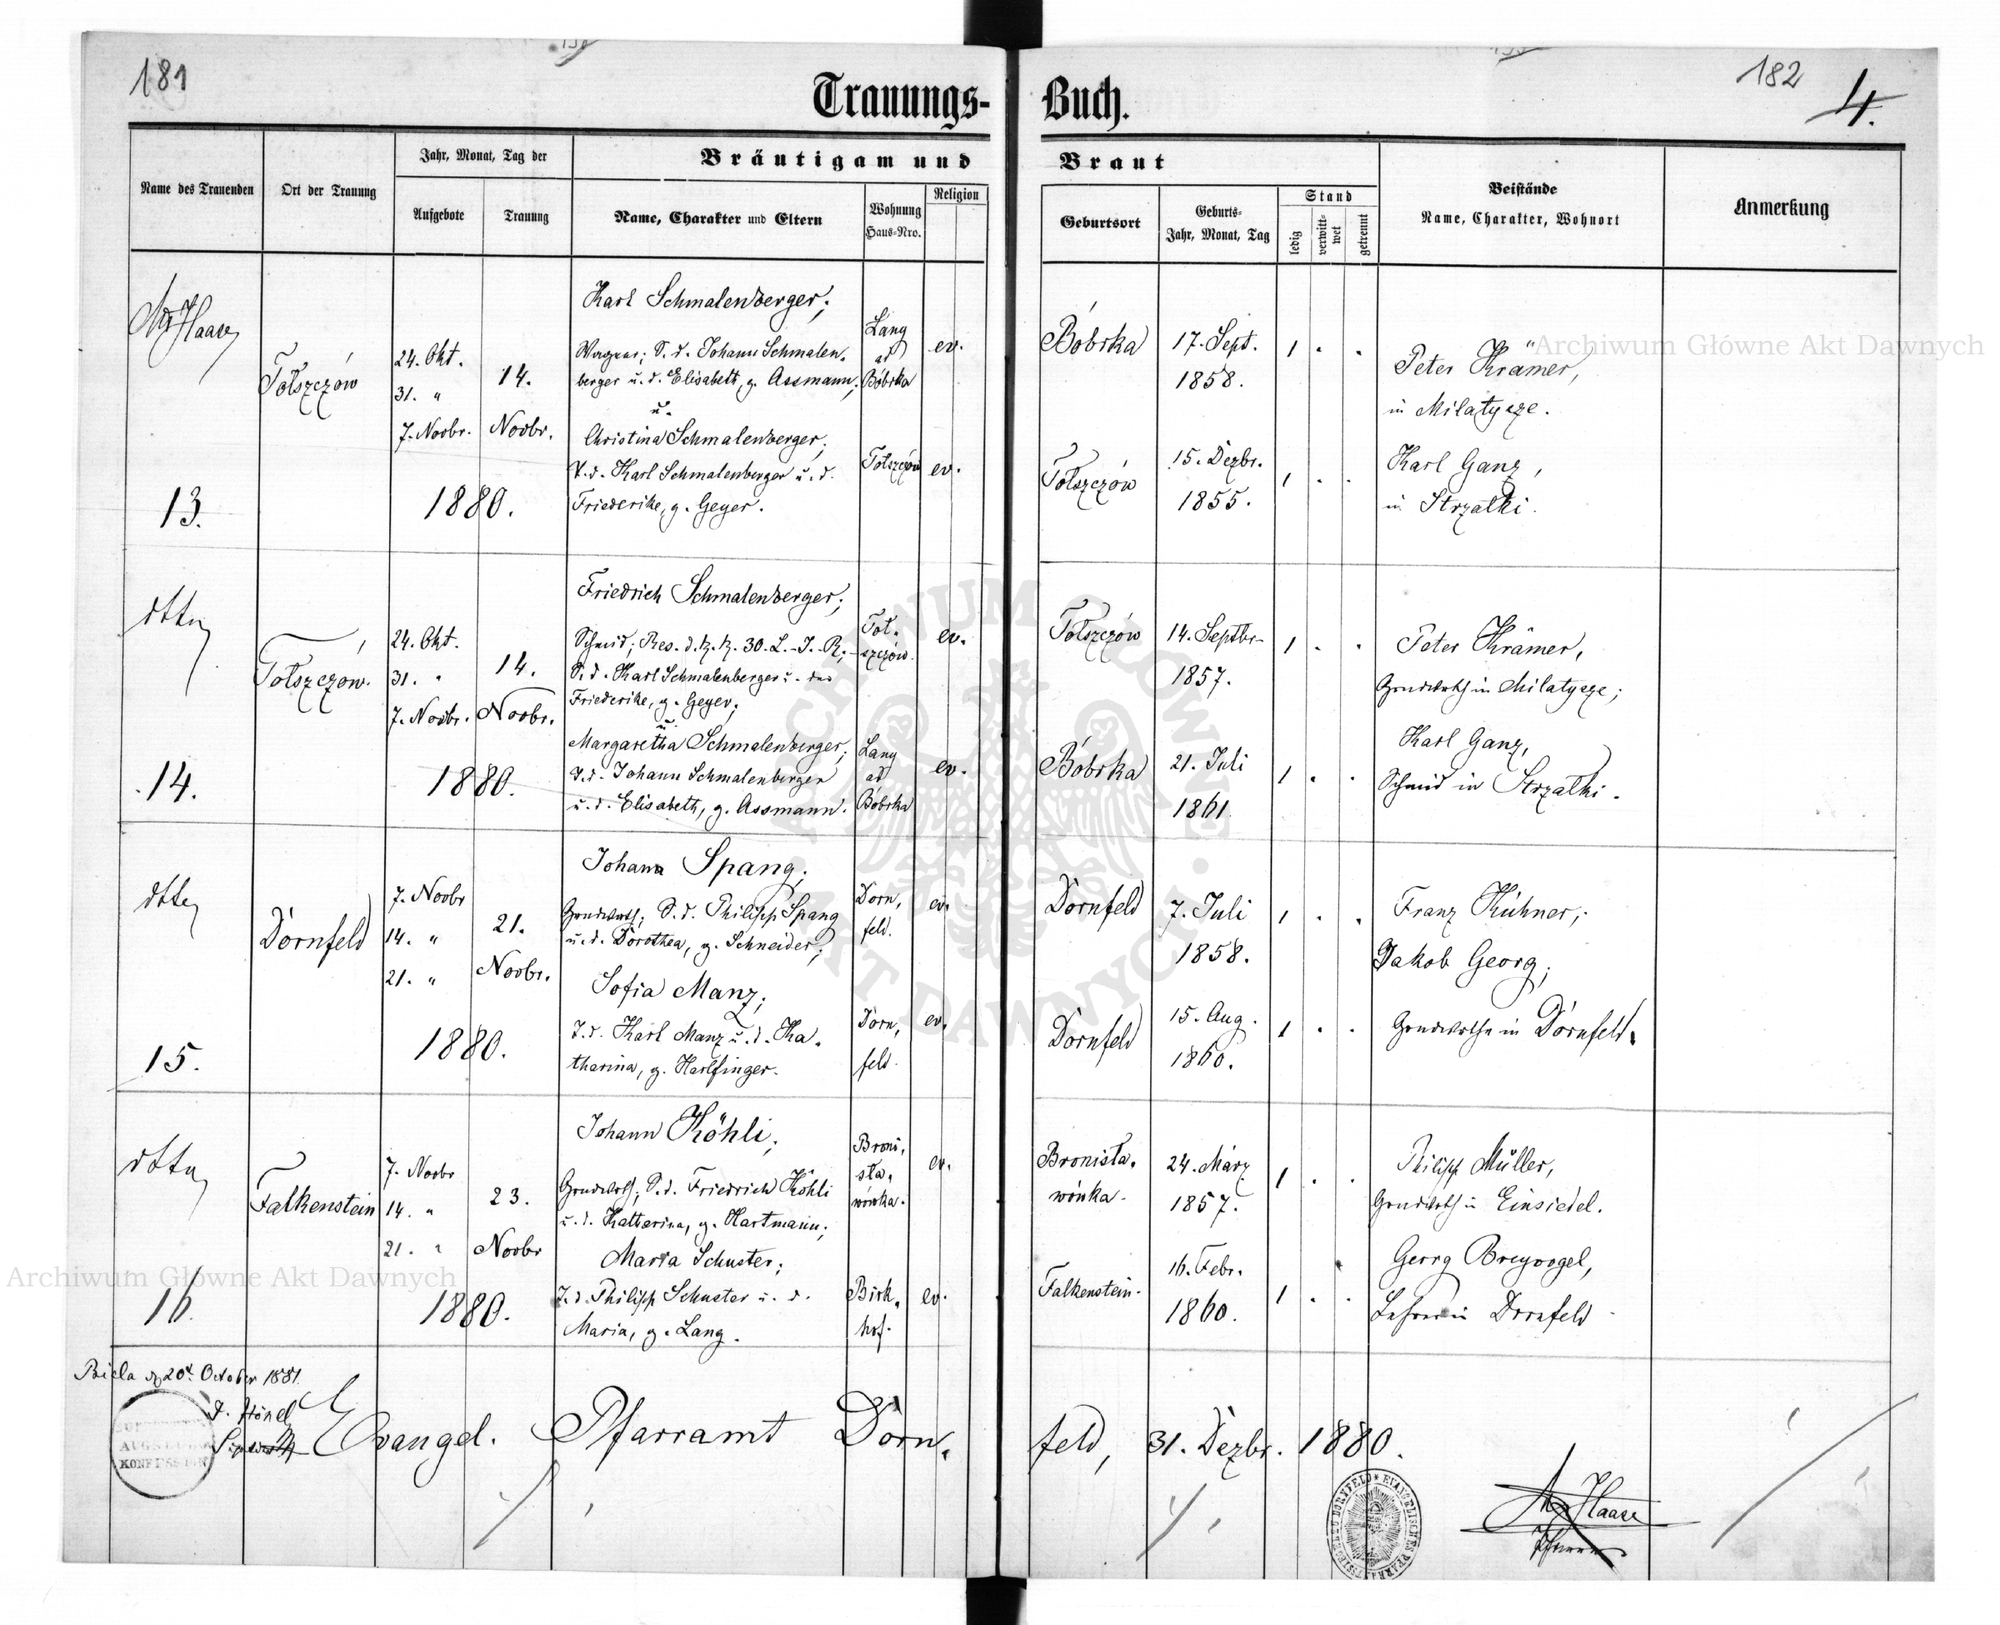 181
182
4.
Trauungs-
Buch.
Name des Trauenden
Ort der Trauung
Jahr, Monat, Tag der
Aufgebote
Trauung
Bräutigam und
Braut
Name, Charakter und Eltern
Wohnung
Haus-Nro.
Religion
Geburtsort
Geburts-
Jahr, Monat, Tag
Stand
ledig
verwitt-
wet
getrennt
Beistände
Name, Charakter, Wohnort
Anmerkung
Haase
13.
Tołszczów
24. Okt.
31. "
7. Novbr.
14.
Novbr.
1880.
Karl Schmalenberger;
Wagner; S. d. Johann Schmalen-
berger u. d. Elisabeth, g. Assmann;
u.
Christina Schmalenberger;
T. d. Karl Schmalenberger u. d.
Friederike, g. Geyer.
Lany
ad
Bóbrka
ev.
Tołszczów
ev.
Bóbrka
17. Sept.
1858.
1 . .
Tołszczów
15. Dezbr.
1855.
1 . .
Peter Krämer,
in Milatycze.
Karl Ganz,
in Strzałki.
dtto
14.
Tołszczów.
24. Okt.
31. "
7. Novbr.
14.
Novbr.
1880.
Friedrich Schmalenberger;
Schmid; Res. d. k. k. 30. L.-I.-R.;
S. d. Karl Schmalenberger u. der
Friederike, g. Geyer;
u.
Margaretha Schmalenberger;
T. d. Johann Schmalenberger
u. d. Elisabeth, g. Assmann.
Toł-
szczów.
ev.
Lany
ad
Bóbrka
ev.
Tołszczów
14. Septbr.
1857.
1 . .
Bóbrka
21. Juli
1861.
1 . .
Peter Krämer,
Grundwirth in Milatycze;
Karl Ganz,
Schmid in Strzałki.
dtto
15.
Dornfeld
7. Novbr
14. "
21. "
21.
Novbr.
1880.
Johann Spang;
Grundwirth; S. d. Philipp Spang
u. d. Dorothea, g. Schneider;
Sofia Manz;
T. d. Karl Manz u. d. Ka-
tharina, g. Harlfinger.
Dorn-
feld.
ev.
Dorn-
feld.
ev.
Dornfeld
7. Juli
1858.
1 . .
Dornfeld
15. Aug.
1860.
1 . .
Franz Kühner;
Jakob Georg;
Grundwirthe in Dornfeld.
dtto
16.
Falkenstein
7. Novbr
14. "
21. "
23.
Novbr
1880.
Johann Köhli;
Grundwirth; S. d. Friedrich Köhli
u. d. Katharina, g. Hartmann;
Maria Schuster;
T. d. Philipp Schuster u. d.
Maria, g. Lang.
Broni-
sła-
wówka.
ev.
Birk-
hof.
ev.
Bronisła-
wówka.
24. März
1857.
1 . .
Falkenstein.
16. Febr.
1860.
1 . .
Philipp Müller,
Grundwirth in Einsiedel.
Georg Breyvogel,
Lehrer in Dornfeld.
Biela 20. October 1881.
AUGSBURG.
KONFESSION
Evangel. Pfarramt Dorn-
feld, 31. Dezbr. 1880.
Haase
Pfarrer
Archiwum Główne Akt Dawnych
Archiwum Główne Akt Dawnych
ARCHIWUM GŁÓWNE AKT DAWNYCH